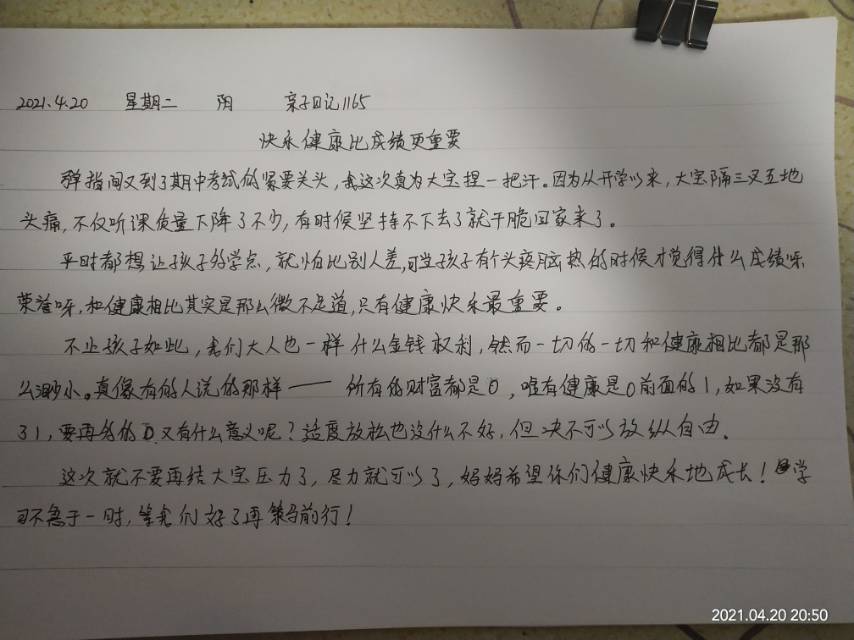 2021.4.20 星期二 阴 亲子日记1165
快乐健康比成绩更重要
弹指间又到了期中考试的紧要关头,我这次真为大宝捏一把汗。因为从开学以来,大宝隔三叉五地
头痛,不仅听课质量下降了不少,有时候坚持不下去了就干脆回家来了。
平时都想让孩子多学点,就怕比别人差,可当孩子有个头疼脑热的时候才觉得什么成绩呀
荣誉呀,和健康相比其实是那么微不足道,只有健康快乐最重要。
不止孩子如此,我们大人也一样什么金钱权利,然而一切的一切和健康相比都是那
么渺小。真像有的人说的那样——所有的财富都是0,唯有健康是0前面的1,如果没有
了1,要再多的0又有什么意义呢?适度放松也没什么不好,但决不可以放纵自由。
这次就不要再给大宝压力了,尽力就可以了,妈妈希望你们健康快乐地成长!学
习不急于一时,等我们好了再策马前行!
2021.04.20 20:50